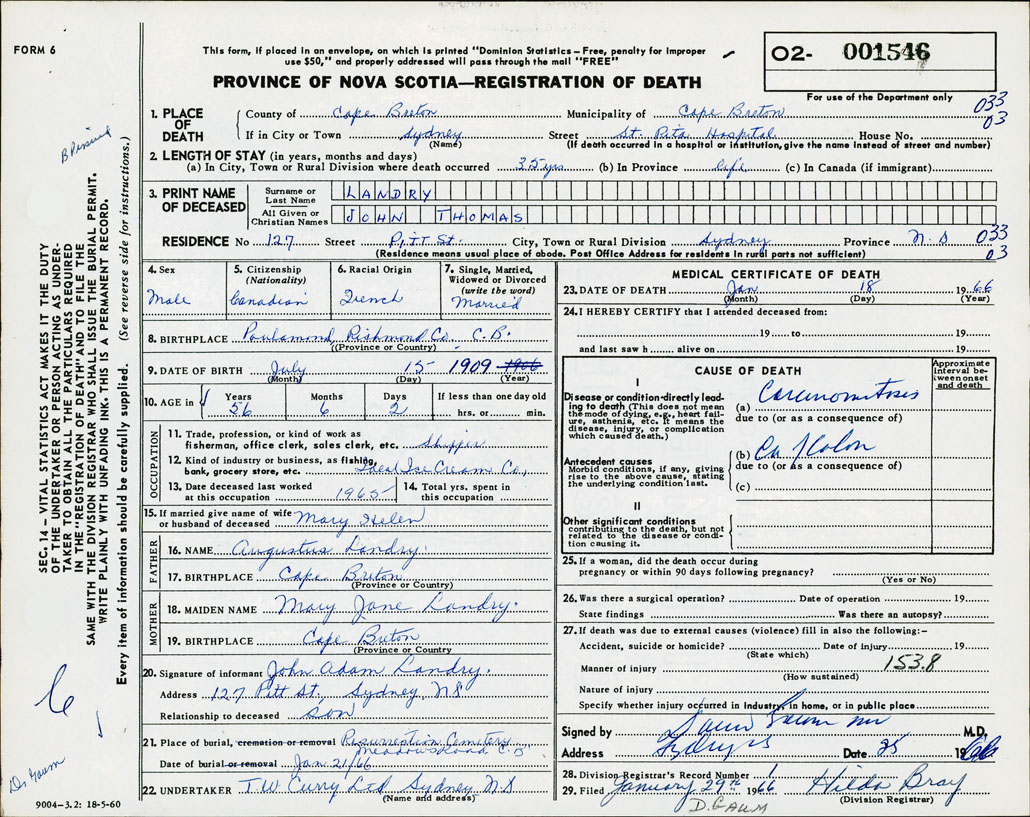 FORM 6
This form, if placed in an envelope, on which is printed "Dominion Statistics – Free, penalty for improper
use $50," and properly addressed will pass through the mail "FREE"
PROVINCE OF NOVA SCOTIA—REGISTRATION OF DEATH
02- 001546
For use of the Department only
1. PLACE OF DEATH
County of Cape Breton Municipality of Cape Breton 033
If in City or Town Sydney Street St. Rita Hospital House No. 03
(Name) (If death occurred in a hospital or institution, give the name instead of street and number)
2. LENGTH OF STAY (in years, months and days)
(a) In City, Town or Rural Division where death occurred 35 yrs (b) In Province life (c) In Canada (if immigrant)
3. PRINT NAME OF DECEASED
Surname or Last Name LANDRY
All Given or Christian Names JOHN THOMAS
RESIDENCE No 127 Street Pitt St. City, Town or Rural Division Sydney Province N.S 033
(Residence means usual place of abode. Post Office Address for residents in rural parts not sufficient) 03
4. Sex Male
5. Citizenship (Nationality) Canadian
6. Racial Origin French
7. Single, Married, Widowed or Divorced (write the word) Married
8. BIRTHPLACE Poulamond Richmond Co. C.B.
(Province or Country)
9. DATE OF BIRTH July 15 1909 1906
(Month) (Day) (Year)
10. AGE in Years 56 Months 6 Days 2 If less than one day old
hrs. or min.
OCCUPATION
11. Trade, profession, or kind of work as
fisherman, office clerk, sales clerk, etc. Shipper
12. Kind of industry or business, as fishing,
bank, grocery store, etc. Ideal Ice Cream Co,
13. Date deceased last worked
at this occupation 1965
14. Total yrs. spent in
this occupation
15. If married give name of wife
or husband of deceased Mary Helen
FATHER
16. NAME Augustus Landry.
17. BIRTHPLACE Cape Breton
(Province or Country)
MOTHER
18. MAIDEN NAME Mary Jane Landry.
19. BIRTHPLACE Cape Breton
(Province or Country
20. Signature of informant John Adam Landry.
Address 127 Pitt St., Sydney, NS
Relationship to deceased son
21. Place of burial, cremation or removal Resurrection Cemetery
Date of burial or removal Jan 21/66
22. UNDERTAKER T.W Curry Ltd Sydney N.S
(Name and address)
9004–3.2: 18-5-60
MEDICAL CERTIFICATE OF DEATH
23. DATE OF DEATH Jan 18 1966
(Month) (Day) (Year)
24. I HEREBY CERTIFY that I attended deceased from:
19 to 19
and last saw h alive on 19
CAUSE OF DEATH
Approximate interval between onset and death
I
Disease or condition directly leading to death (This does not mean the mode of dying, e.g., heart failure, asthenia, etc. It means the disease, injury, or complication which caused death.)
(a) Carcinomitosis
due to (or as a consequence of)
Antecedent causes
Morbid conditions, if any, giving rise to the above cause, stating the underlying condition last.
(b) Ca of Colon
due to (or as a consequence of)
(c)
II
Other significant conditions
contributing to the death, but not related to the disease or condition causing it.
25. If a woman, did the death occur during
pregnancy or within 90 days following pregnancy?
(Yes or No)
26. Was there a surgical operation? Date of operation 19
State findings Was there an autopsy?
27. If death was due to external causes (violence) fill in also the following:–
Accident, suicide or homicide? Date of injury 19
(State which)
Manner of injury 153.8
(How sustained)
Nature of injury
Specify whether injury occurred in Industry, in home, or in public place
Signed by M.D.
Address Sydney Date 25 1966
28. Division Registrar's Record Number 1
29. Filed January 29th 1966 Hilda Bray
(Division Registrar)
D. GAUM
SEC. 14 – VITAL STATISTICS ACT MAKES IT THE DUTY
OF THE UNDERTAKER OR PERSON ACTING AS UNDER-
TAKER TO OBTAIN ALL THE PARTICULARS REQUIRED
IN THE "REGISTRATION OF DEATH" AND TO FILE THE
SAME WITH THE DIVISION REGISTRAR WHO SHALL ISSUE THE BURIAL PERMIT.
WRITE PLAINLY WITH UNFADING INK. THIS IS A PERMANENT RECORD.
Every item of information should be carefully supplied. (See reverse side for instructions.)
Dr Gaum